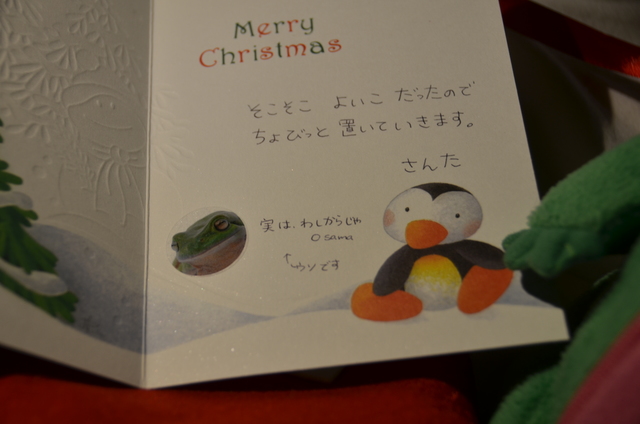 Merry
Christmas
そこそこ よいこ だったので
ちょびっと 置いていきます。
さんた
実は、わしからじゃ
Osama
↑ウソです